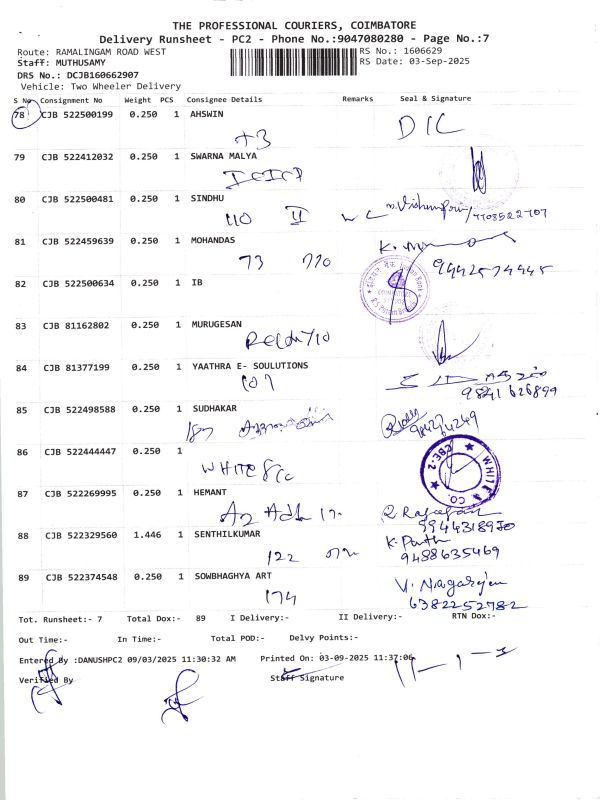 THE PROFESSIONAL COURIERS, COIMBATORE
Delivery Runsheet - PC2 - Phone No.:9047080280 - Page No.:7
Route: RAMALINGAM ROAD WEST RS No.: 1606629
Staff: MUTHUSAMY RS Date: 03-Sep-2025
DRS No.: DCJB160662907
Vehicle: Two Wheeler Delivery
S No Consignment No Weight PCS Consignee Details Remarks Seal & Signature
78 CJB 522500199 0.250 1 AHSWIN
73 DIC
79 CJB 522412032 0.250 1 SWARNA MALYA
ICICI
80 CJB 522500481 0.250 1 SINDHU
110 II
81 CJB 522459639 0.250 1 MOHANDAS
73
82 CJB 522500634 0.250 1 IB
83 CJB 81162802 0.250 1 MURUGESAN
84 CJB 81377199 0.250 1 YAATHRA E- SOULUTIONS
107
9841626899
85 CJB 522498588 0.250 1 SUDHAKAR
86 CJB 522444447 0.250 1
WHITE & CO
WHITE & CO.
CBE-2
87 CJB 522269995 0.250 1 HEMANT
88 CJB 522329560 1.446 1 SENTHILKUMAR
122
9488635469
89 CJB 522374548 0.250 1 SOWBHAGHYA ART
174 V. Nagarajan
6382252782
Tot. Runsheet:- 7 Total Dox:- 89 I Delivery:- II Delivery:- RTN Dox:-
Out Time:- In Time:- Total POD:- Delvy Points:-
Entered By :DANUSHPC2 09/03/2025 11:30:32 AM Printed On: 03-09-2025 11:37:06
Verified By Staff Signature